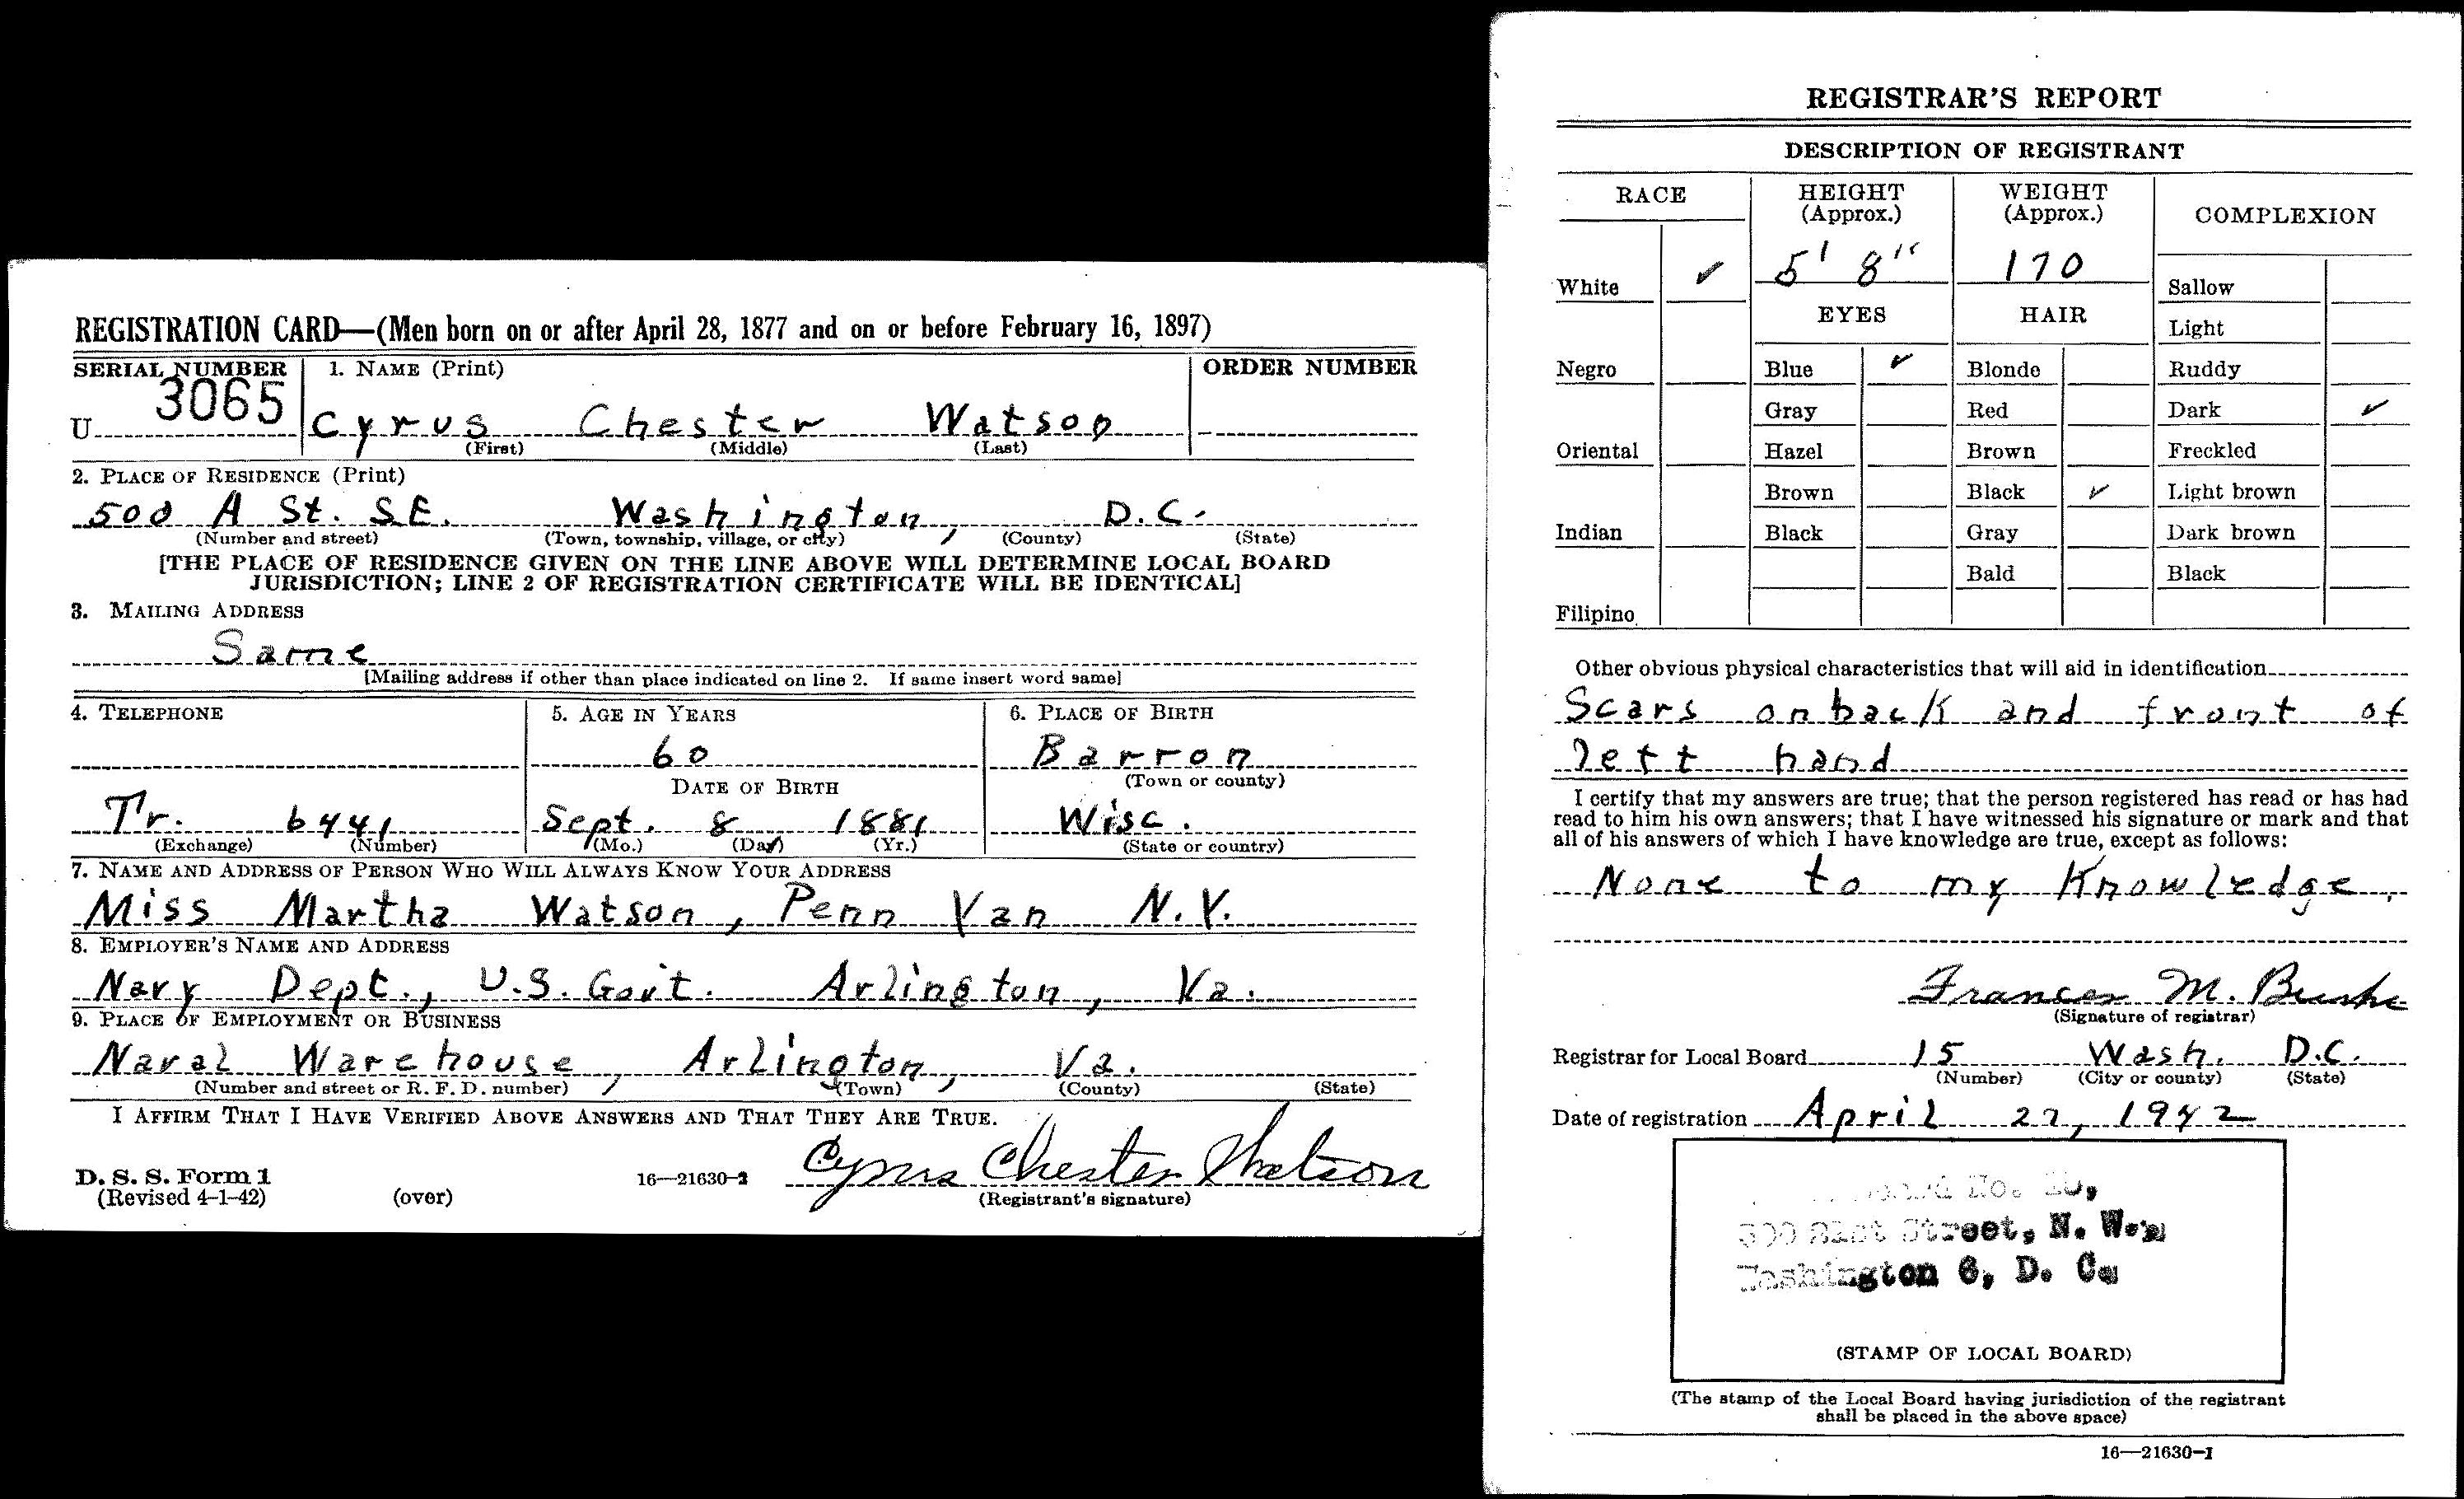 REGISTRATION CARD—(Men born on or after April 28, 1877 and on or before February 16, 1897)
SERIAL NUMBER
1. NAME (Print)
ORDER NUMBER
U 3065
Cyrus Chester Watson
(First) (Middle) (Last)
2. PLACE OF RESIDENCE (Print)
500 A St. S.E. Washington, D.C.
(Number and street) (Town, township, village, or city) (County) (State)
[THE PLACE OF RESIDENCE GIVEN ON THE LINE ABOVE WILL DETERMINE LOCAL BOARD
JURISDICTION; LINE 2 OF REGISTRATION CERTIFICATE WILL BE IDENTICAL]
3. MAILING ADDRESS
Same
[Mailing address if other than place indicated on line 2. If same insert word same]
4. TELEPHONE
Tr. 6441
(Exchange) (Number)
5. AGE IN YEARS
60
DATE OF BIRTH
Sept. 8 1881
(Mo.) (Day) (Yr.)
6. PLACE OF BIRTH
Barron
(Town or county)
Wisc.
(State or country)
7. NAME AND ADDRESS OF PERSON WHO WILL ALWAYS KNOW YOUR ADDRESS
Miss Martha Watson, Penn Yan N.Y.
8. EMPLOYER'S NAME AND ADDRESS
Navy Dept., U.S. Gov't. Arlington, Va.
9. PLACE OF EMPLOYMENT OR BUSINESS
Naval Warehouse, Arlington, Va.
(Number and street or R. F. D. number) (Town) (County) (State)
I AFFIRM THAT I HAVE VERIFIED ABOVE ANSWERS AND THAT THEY ARE TRUE.
Cyrus Chester Watson
D. S. S. Form 1
(Revised 4-1-42) (over) 16—21630-2 (Registrant's signature)
REGISTRAR'S REPORT
DESCRIPTION OF REGISTRANT
RACE
White ✓
Negro
Oriental
Indian
Filipino
HEIGHT
(Approx.)
5' 8"
WEIGHT
(Approx.)
170
EYES
Blue ✓
Gray
Hazel
Brown
Black
HAIR
Blonde
Red
Brown
Black ✓
Gray
Bald
COMPLEXION
Sallow
Light
Ruddy
Dark ✓
Freckled
Light brown
Dark brown
Black
Other obvious physical characteristics that will aid in identification
Scars on back and front of
left hand
I certify that my answers are true; that the person registered has read or has had
read to him his own answers; that I have witnessed his signature or mark and that
all of his answers of which I have knowledge are true, except as follows:
None to my Knowledge.
Frances M. Burke
(Signature of registrar)
Registrar for Local Board 15 Wash. D.C.
(Number) (City or county) (State)
Date of registration April 27, 1942
No.
Street, N. W.
Washington 6, D. C.
(STAMP OF LOCAL BOARD)
(The stamp of the Local Board having jurisdiction of the registrant
shall be placed in the above space)
16—21630-1